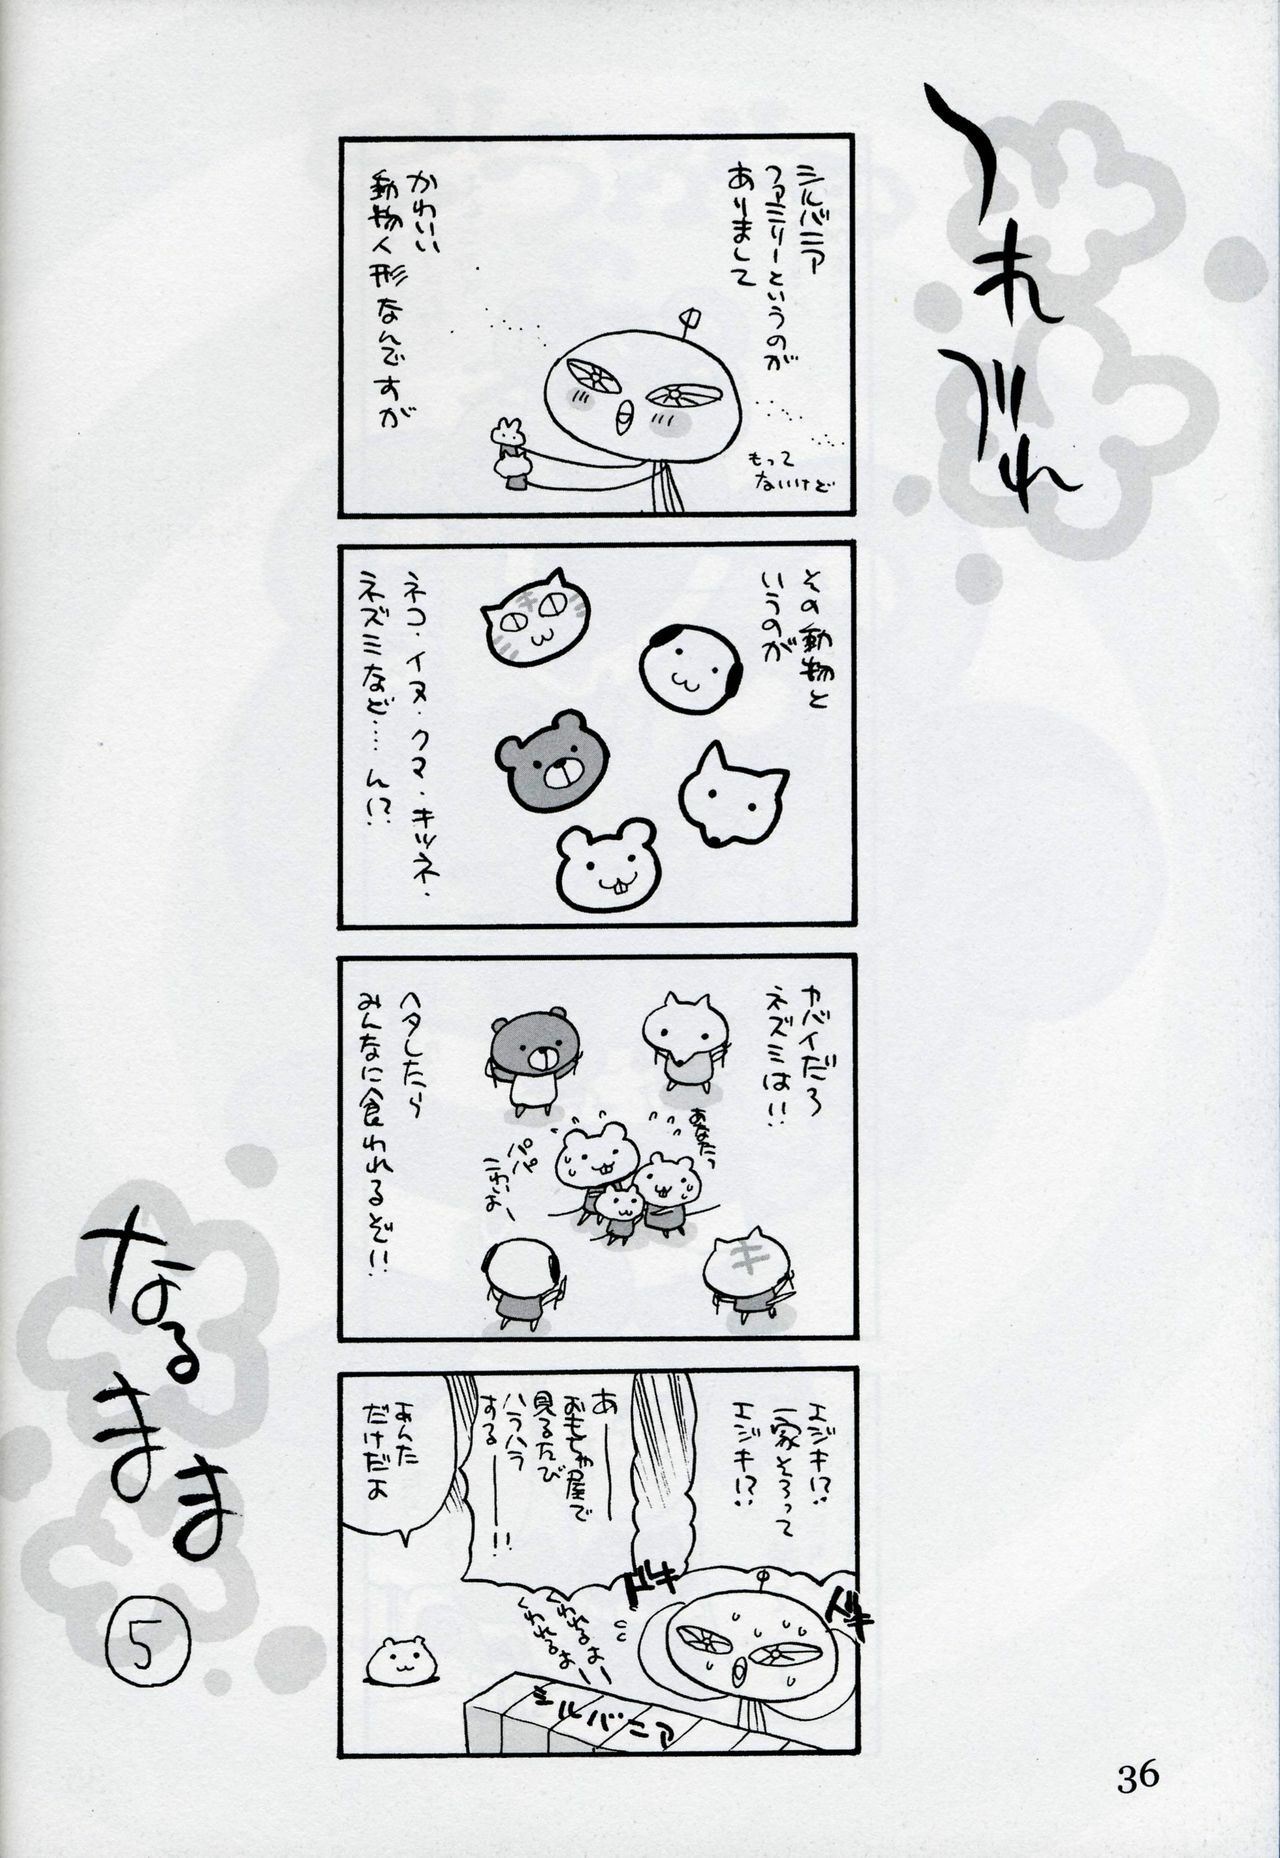 つれづれ
シルバニア
ファミリーというのが
ありまして
かわいい
動物人形なんですが
もって
ないけど
その動物と
いうのが
ネコ・イヌ・クマ・キツネ・
ネズミなど……ん!?
ヤバイだろ
ネズミは!!
あなたっ
パパ
こわいよー
ヘタしたら
みんなに食われるぞ!!
エジキ!?
一家そろって
エジキ!?
あ――――
おもちゃ屋で
見るたび
ハラハラ
する――――!!
ドキ
ドキ
くわれるよー
くわれるよー
シルバニア
あんた
だけだよ
なるまま
5
36